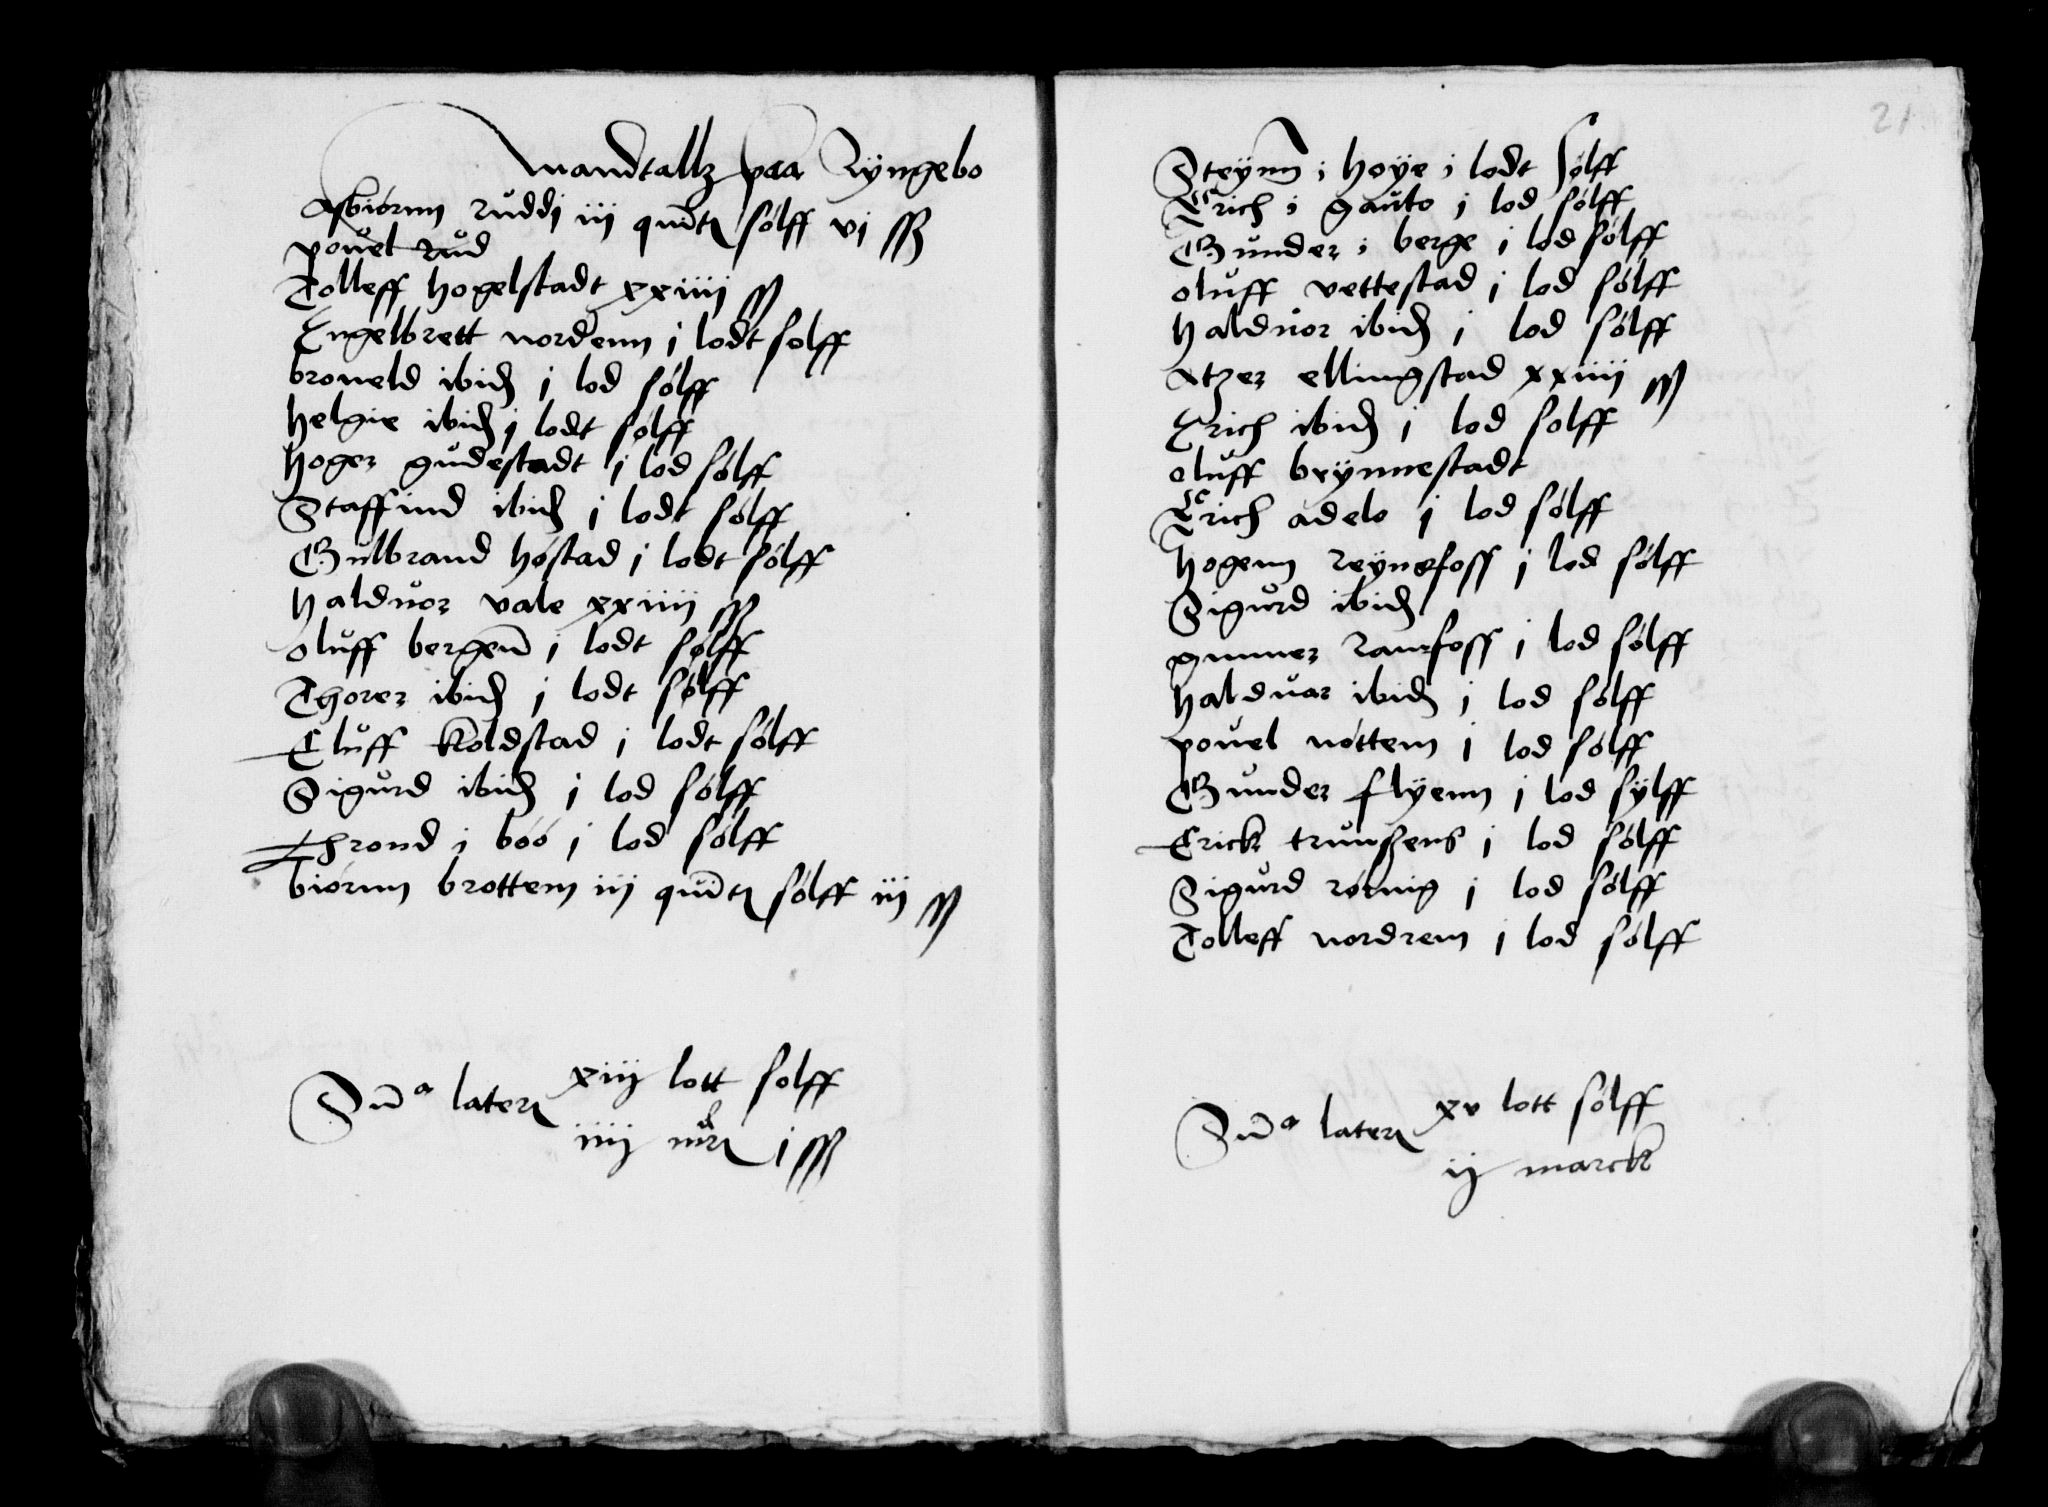 mandtallz paa Ryngebo
Asbiørnn ruddj iij quint sølff vj ß
povel Rud
Tolleff hogelstadt xxiiij ß
Engelbrett nordenn j lodt sølff
broneld ibid j lod sølff
helgie ibid j lodt sølff
hoger gudestadt j lod sølff
Staffind ibid j lodt sølff
Gulbrand høstad j lodt sølff
halduor vale xxiiij ß
oluff bergenn j lodt sølff
Thorer ibid j lodt sølff
Oluff koldstad j lodt sølff
Sigurd ibid j lod sølff
Thrond i bøø j lod sølff
biørnn brottem iij quint sølff iij ß
Suma lateris xiij lott sølff
iiij mrc j ß
21
Steynn i høye j lodt sølff
Erich i gauto j lod sølff
Gunder i berge j lod sølff
oluff vettestad j lod sølff
halduor ibid j lod sølff
Atzer ellingstad xxiiij ß
Erich ibid j lod sølff
oluff brynnestadt
Erich adelo j lod sølff
hogenn reynefoss j lod sølff
Sigurd ibid
gunner Ranefoss j lod sølff
halduar ibid j lod sølff
povel nøttem j lod sølff
Gunder flyenn j lod sylff
Erick trunsens j lod sølff
Sigurd rønnig j lod sølff
Tolleff nordrem j lod sølff
Suma lateris xv lott sølff
ij marck